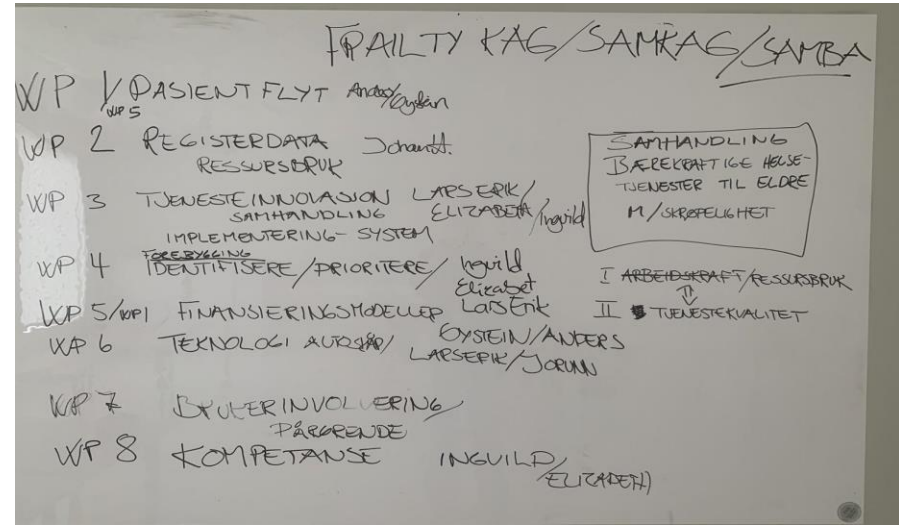 FRAILTY KAG/SAMKAG/SAMBA
WP 1/ PASIENTFLYT Anders/Øystein
WP5
WP 2 REGISTERDATA Johan H.
RESSURSBRUK
WP 3 TJENESTEINNOVASJON LARSERIK/
SAMHANDLING ELIZABETH/Ingvild
IMPLEMENTERING- SYSTEM
FOREBYGGING
WP 4 IDENTIFISERE/PRIORITERE/ Ingvild
Elizabet
WP 5/WP1 FINANSIERINGSMODELLER LarsErik
WP 6 TEKNOLOGI ØYSTEIN/ANDERS
LARSERIK/JORUNN
WP 7 BRUKERINVOLVERING/
PÅRØRENDE
WP 8 KOMPETANSE INGVILD/
ELIZABETH
SAMHANDLING
BÆREKRAFTIGE HELSE-
TJENESTER TIL ELDRE
M/SKRØPELIGHET
I ARBEIDSKRAFT/RESSURSBRUK
⇕
II TJENESTEKVALITET